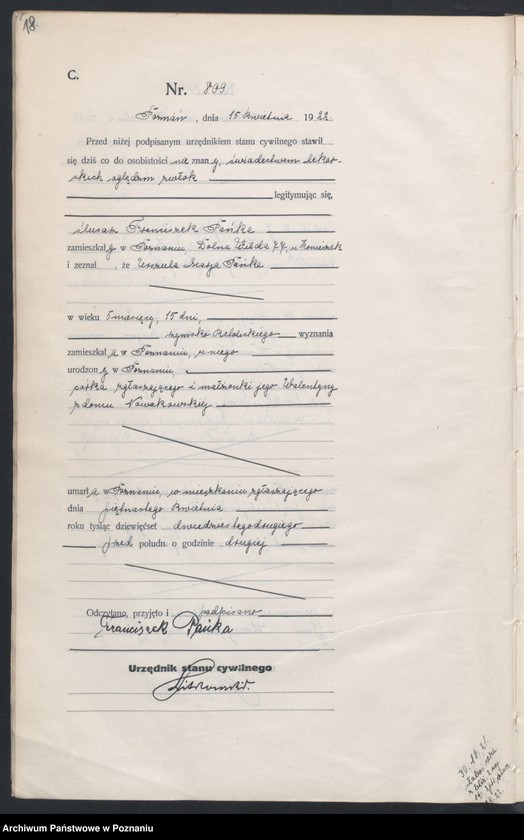 18.
C.
Nr. 809
Poznań, dnia 15 kwietnia 1922.
Przed niżej podpisanym urzędnikiem stanu cywilnego stawił
się dziś co do osobistości nie znany, świadectwem lekar-
skich oględzin zwłok
legitymując się,
ślusarz Franciszek Pańka
zamieszkały w Poznaniu, Dolna Wilda 77,
i zeznał, że Urszula Pańka
w wieku 5 miesięcy, 15 dni,
rzymsko katolickiego wyznania
zamieszkała w Poznaniu, u niego
urodzony w Poznaniu,
córka zgłaszającego i małżonki jego Walentyny
z domu Nowakowskiej
umarła w Poznaniu, w mieszkaniu zgłaszającego
dnia piętnastego kwietnia
roku tysiąc dziewięćset dwudziestego drugiego
przed połudn. o godzinie drugiej
Odczytano, przyjęto i podpisano
Franciszek Pańka
Urzędnik stanu cywilnego
30.10.21.
Archiwum Państwowe w Poznaniu